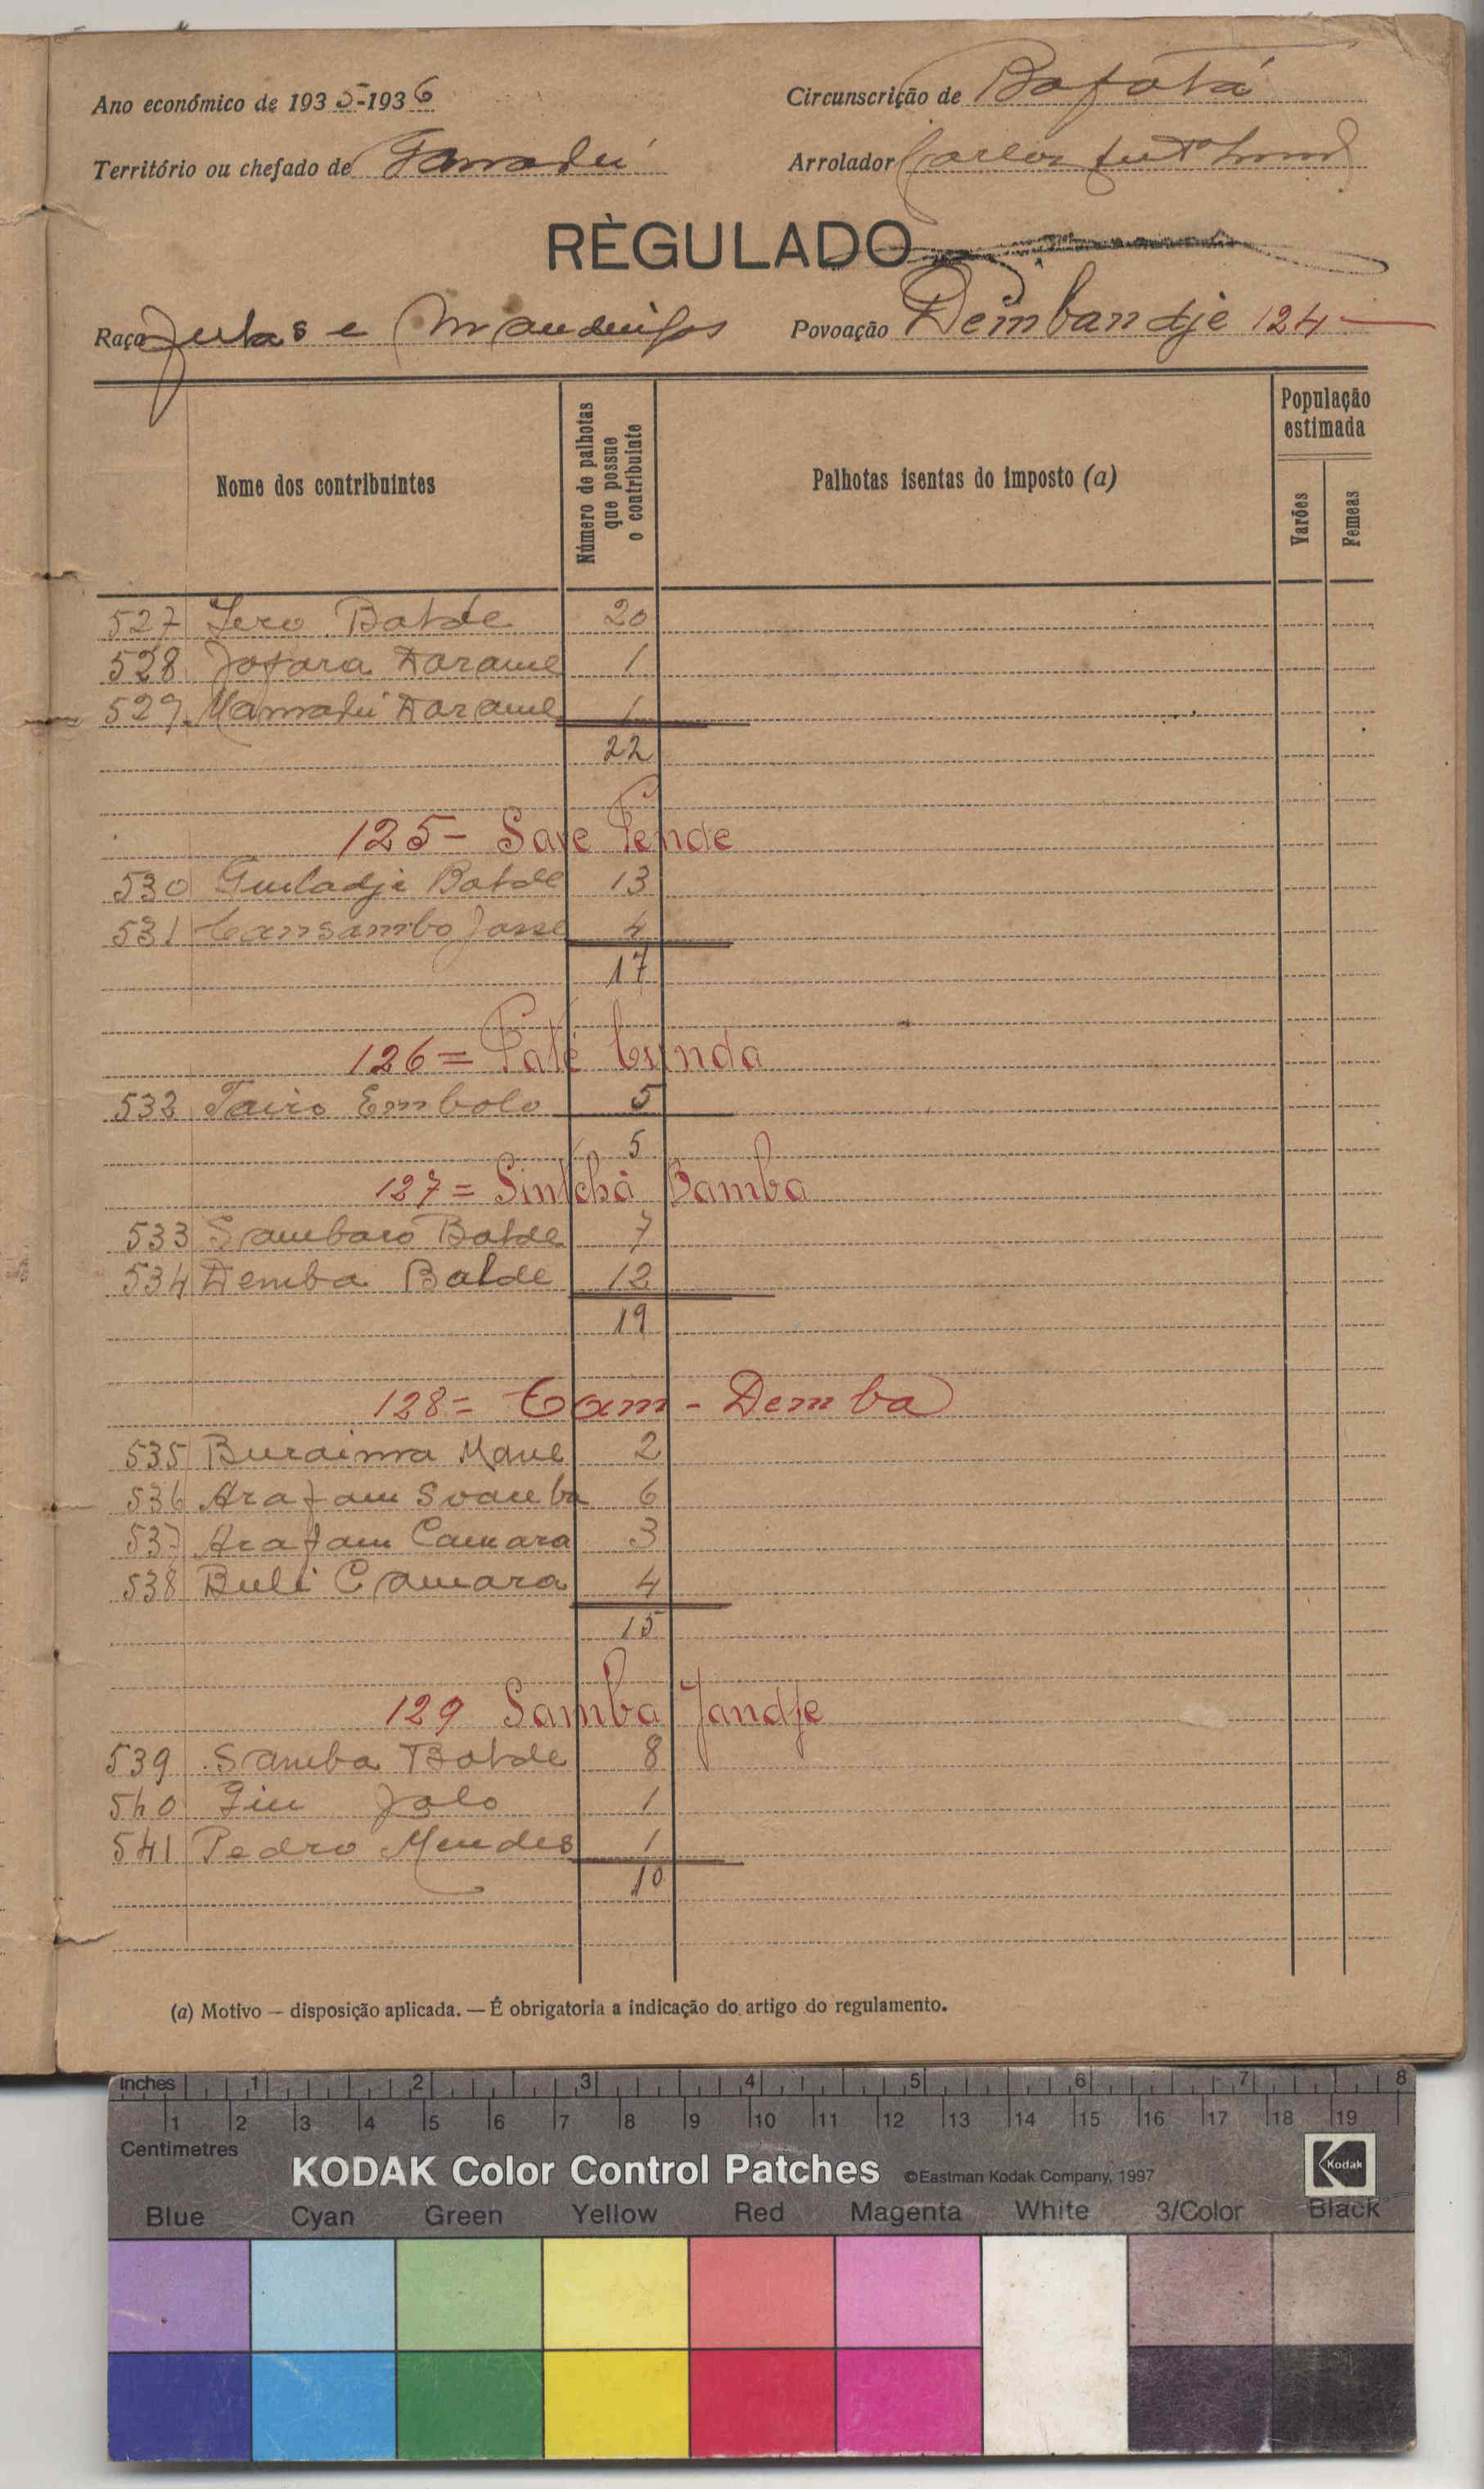 Ano económico de 1935-1936
Circunscrição de Bafatá
Território ou chefado de
Arrolador Carlos
RÈGULADO
Raça Fulas e Mandingos
Povoação Dembandje 124
Nome dos contribuintes
Número de palhotas que possue o contribuinte
Palhotas isentas do imposto (a)
População estimada
Varões
Femeas
527 Sero Balde 20
528 Jafara Darame 1
529 Mamadú Darame 1
22
125- Sare Pende
530 Guiladje Balde 13
531 Cansambo 4
17
126= Paté Cunda
532 Tairo Embalo 5
5
127= Sintchã Bamba
533 Sambaro Balde 7
534 Demba Balde 12
19
128= Cam-Demba
535 Buraima Mane 2
536 Arafam 6
537 Arafam Camara 3
538 Buli Camara 4
15
129 Samba Jandje
539 Samba Balde 8
540 Jalo 1
541 Pedro Mendes 1
10
(a) Motivo — disposição aplicada. — É obrigatoria a indicação do artigo do regulamento.
Inches 1 2 3 4 5 6 7 8
1 2 3 4 5 6 7 8 9 10 11 12 13 14 15 16 17 18 19
Centimetres
KODAK Color Control Patches ©Eastman Kodak Company, 1997 Kodak
Blue Cyan Green Yellow Red Magenta White 3/Color Black